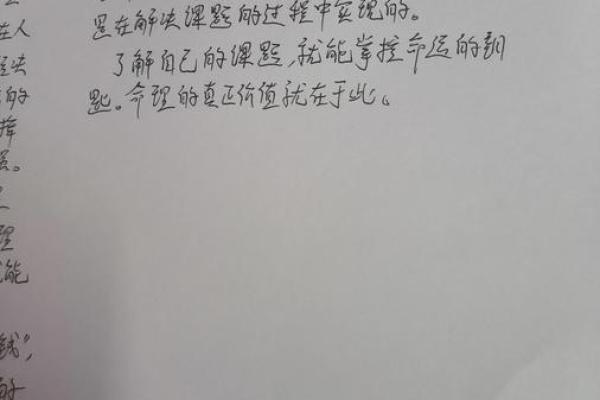 在人
决
的
挥
强。
理
能
钱”,
的
是在解决课题的过程中实现的。
了解自己的课题,就能掌控命运的钥
匙。命理的真正价值就在于此。